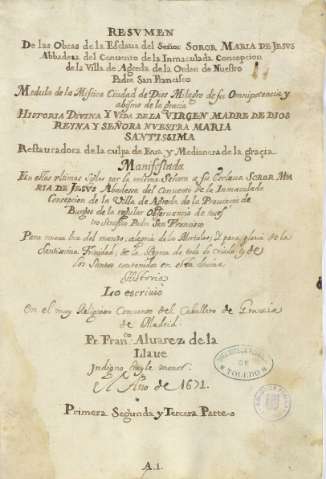 RESVMEN
De las Obras de la Esclaua del Señor SOROR MARIA DE JESVS
Abbadesa del Conuento de la Inmaculada Concepcion
de la Villa de Agreda de la Orden de Nuestro
Padre San Francisco
Modulo de la Mistica Ciudad de Dios Milagro de su Omnipotencia y
abismo de la gracia
HISTORIA DIVINA Y VIDA DE LA VIRGEN MADRE DE DIOS
REYNA Y SEÑORA NVESTRA MARIA
SANTISSIMA
Restauradora de la culpa de Eua, y Medianera de la gracia
Manifestada
En estos vltimos siglos por la misma Señora a su Esclaua SOROR MA
RIA DE JESVS Abadesa del Conuento de la Inmaculada
Concepcion de la Villa de Agreda de la Prouincia de
Burgos de la regular Obseruancia de nues
tro Seraphico Padre San Francisco
Para nueua luz del mundo, alegria de los Mortales, y para gloria de la
Santissima Trinidad, de la Reyna de todo lo criado, y de
los Santos contenidos en esta diuina
Historia
Lo escriuio
En el muy Religioso Conuento del Cauallero de Gracia
de Madrid
Fr. Franco. Aluarez de la
Llaue
Indigno frayle menor.
Año de 1671.
Primera Segunda y Tercera Parte
TOLEDO
A.1.